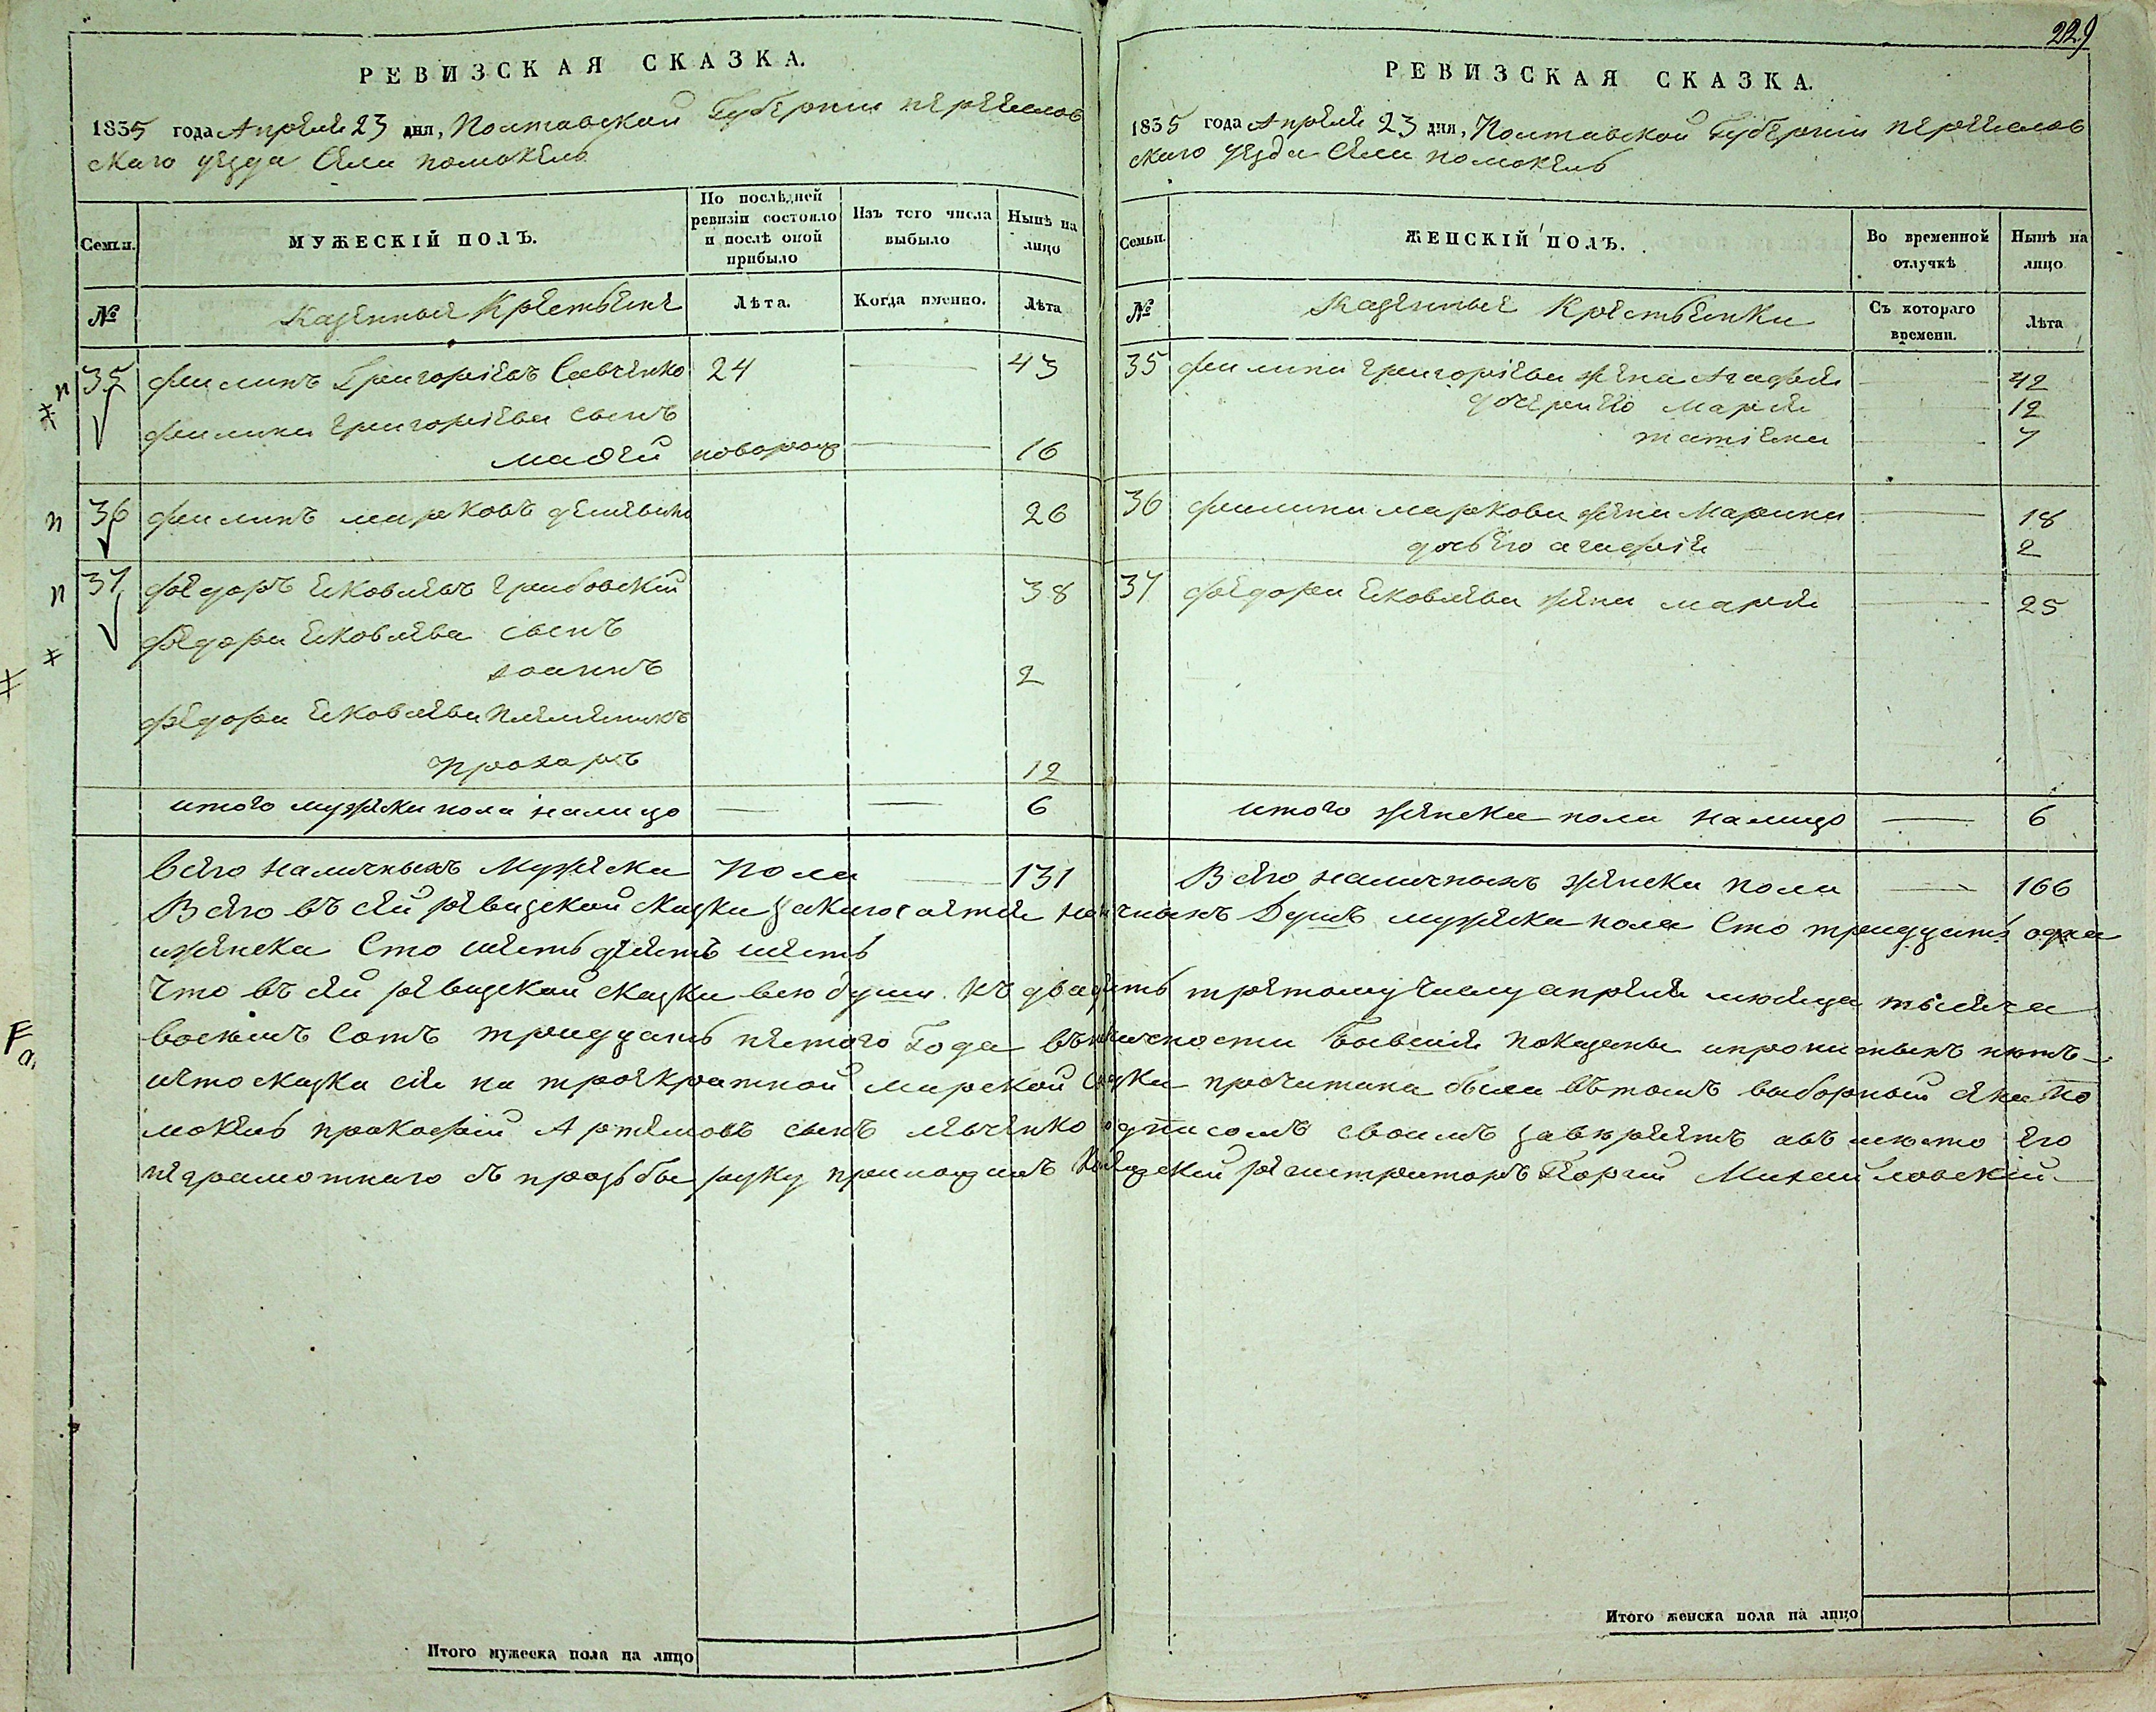 229
РЕВИЗСКАЯ СКАЗКА.
1835 года Апреля 23 дня, Полтавской Губернии переяслов
скаго уезда Села помоклъ
Семьи.
МУЖЕСКІЙ ПОЛЪ.
По послѣдней ревизіи состояло и послѣ оной прибыло
Изъ того числа выбыло
Нынѣ на лицо
№
Казенныя Крестьяне
Лѣта.
Когда именно.
Лѣта
35 филипъ Григориевъ Савченко 24 — 43
филипа григориева сынъ
мадей новорож — 16
36 филипъ марковъ 26
37 федоръ яковлевъ грибовский 38
федора яковлева сынъ
иоанъ 2
федора яковлева племяникъ
прохаръ 12
итого мужеска пола налицо — — 6
всего наличныхъ мужеска пола — 131
РЕВИЗСКАЯ СКАЗКА.
1835 года Апреля 23 дня, Полтавской Губернии переяслов
скаго уезда Села помоклъ
Семьи.
ЖЕНСКІЙ ПОЛЪ.
Во временной отлучкѣ
Нынѣ на лицо
№
Казенные Крестьянки
Съ котораго времени.
Лѣта
35 филипа григориева жена Агафия — 42
дочери его Мария — 12
татияна — 7
36 филипа маркова жена Марина — 18
дочь его агафия 2
37 федора яковлева жена мария — 25
итого женска пола налицо — 6
Всего наличныхъ женска пола — 166
Всего въ сей ревизской сказки душъ мужеска пола Сто тридцать одна
иженска Сто шестьдесятъ шесть
что въ сей ревизской сказки все души къ двадцать третому числу апреля месяца тысяча
восемъ сотъ тридцать пятого Года бывшия показаны ипрописныхъ нетъ
ичто сказка сия на троекратной мирской прочитана была вътомъ выборный
прокофий Артемовъ сынъ левченко подписомъ своимъ завѣряетъ авъместо его
неграмотнаго съ прозьбы руку приложилъ регистраторъ Михайловский
Итого мужеска пола на лицо
Итого женска пола на лицо